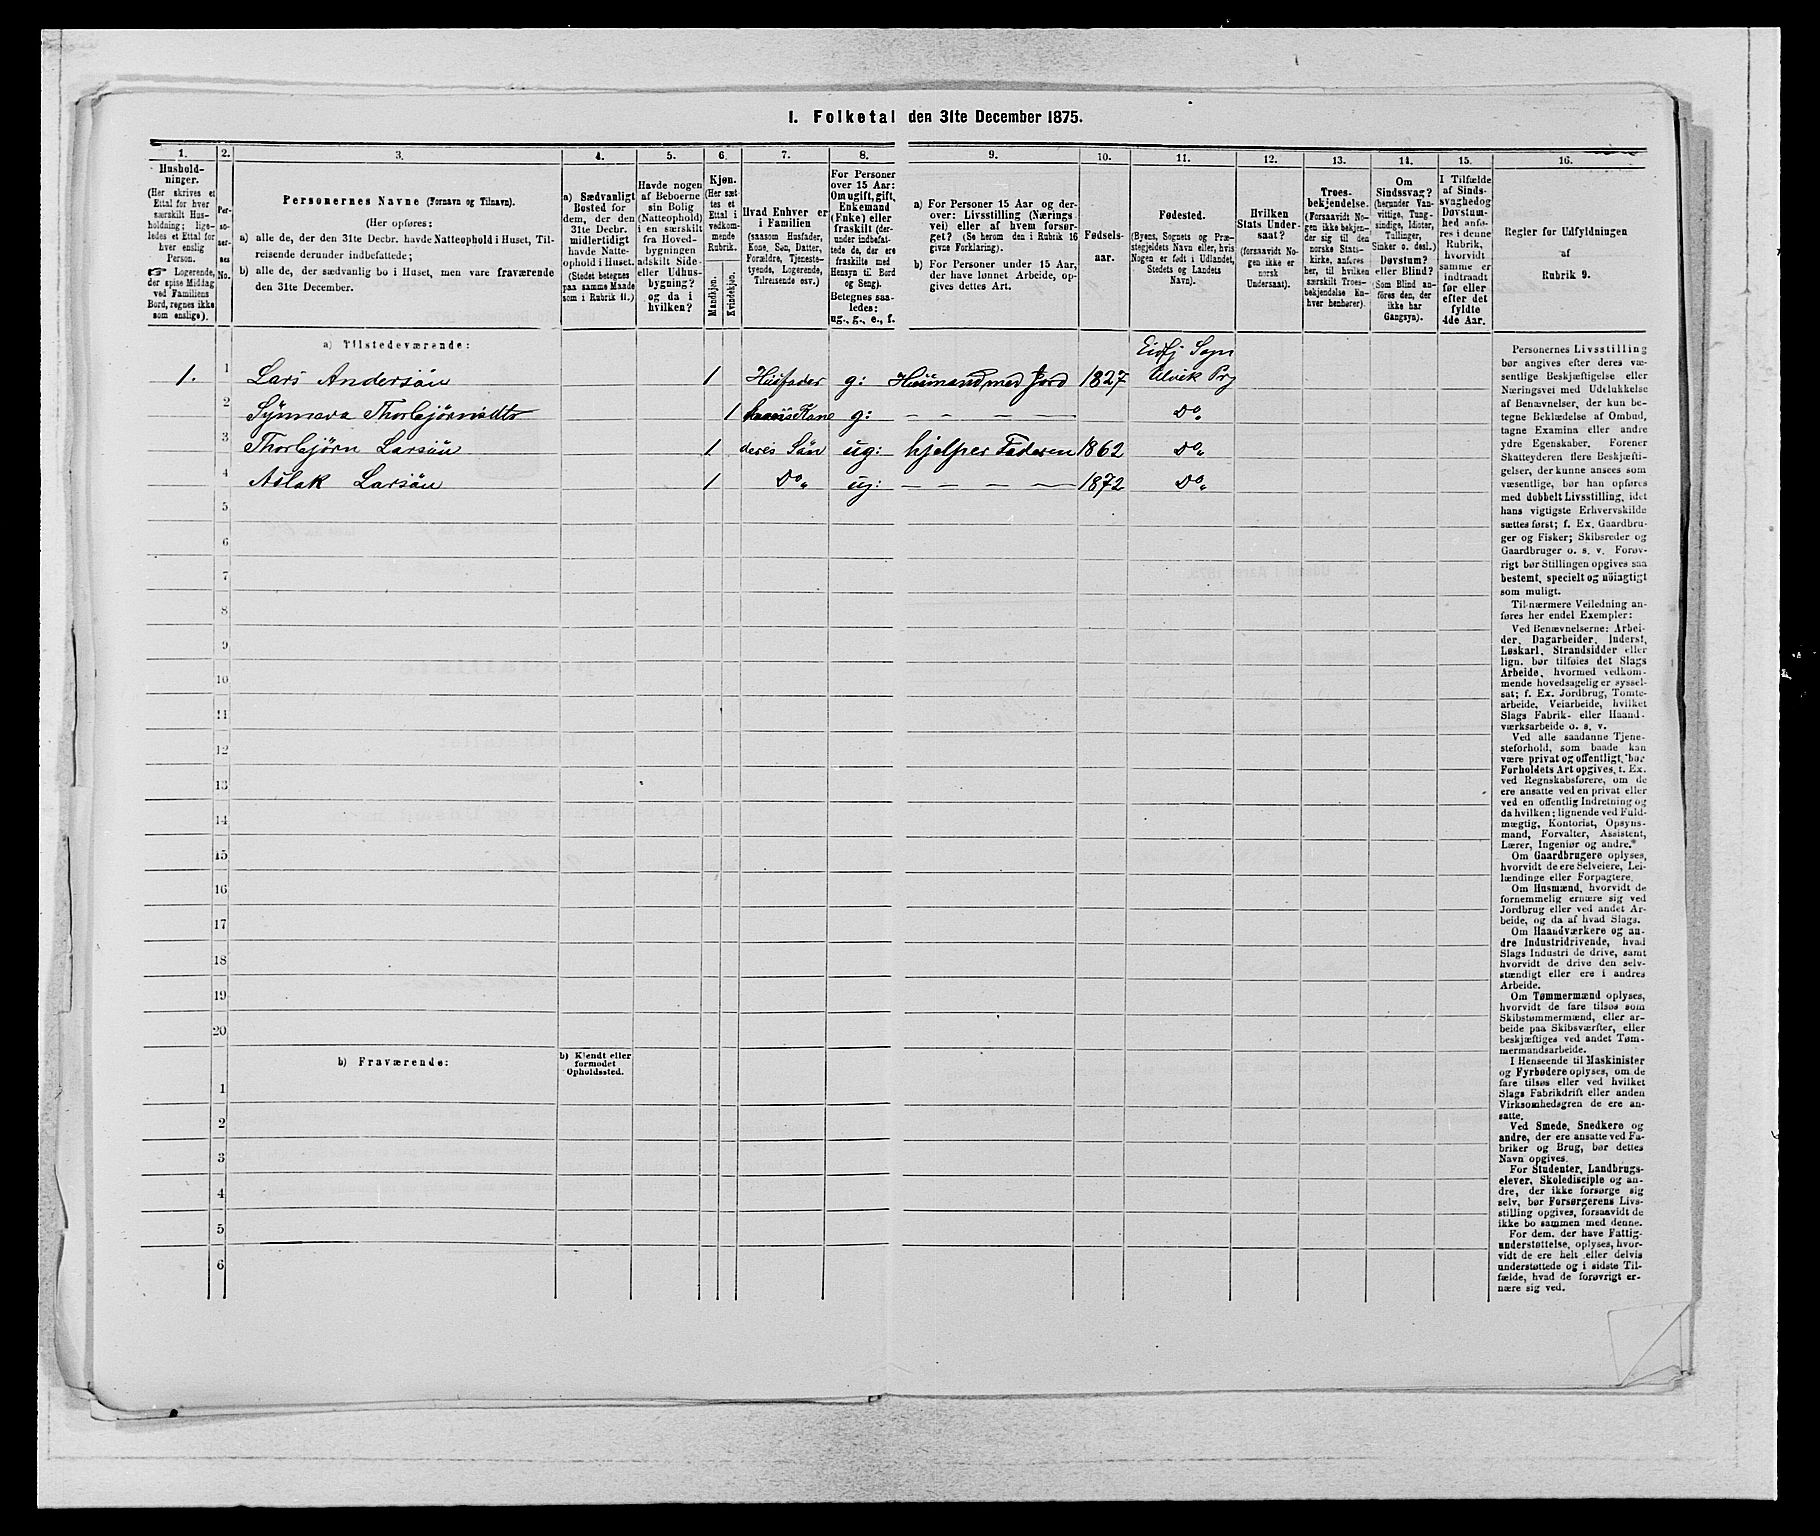 I. Folketal den 31te December 1875.
1. 2. 3. 4. 5. 6. 7. 8. 9. 10. 11. 12. 13. 14. 15. 16.
Hushold-
ninger.
(Her skrives et
Ettal for hver
særskilt Hus-
holdning; lige-
ledes et Ettal for
hver enslig
Person.
☞ Logerende,
der spise Middag
ved Familiens
Bord, regnes ikke
som enslige).
Per-
so-
ner-
nes
No.
Personernes Navne (Fornavn og Tilnavn).
(Her opføres:
a) alle de, der den 31te Decbr. havde Natteophold i Huset, Til-
reisende derunder indbefattede;
b) alle de, der sædvanlig bo i Huset, men vare fraværende
den 31te December.
a) Sædvanligt
Bosted for
dem, der den
31te Decbr.
midlertidigt
havde Natte-
ophold i Huset.
(Stedet betegnes
paa samme Maade
som i Rubrik 11.)
Havde nogen
af Beboerne
sin Bolig
(Natteophold)
i en særskilt
fra Hoved-
bygningen
adskilt Side-
eller Udhus-
bygning?
og da i
hvilken?
Kjøn.
(Her sæt-
tes et
Ettal i
vedkom-
mende
Rubrik.
Mandkjøn.
Kvindekjøn.
Hvad Enhver er
i Familien
(saasom Husfader,
Kone, Søn, Datter,
Forældre, Tjeneste-
tyende, Logerende,
Tilreisende osv.)
For Personer
over 15 Aar:
Om ugift, gift,
Enkemand
(Enke) eller
fraskilt (der-
under indbefat-
tede de, der ere
fraskilte med
Hensyn til Bord
og Seng).
Betegnes saa-
ledes:
ug., g., e., f.
a) For Personer 15 Aar og der-
over: Livsstilling (Nærings-
vei) eller af hvem forsør-
get? (Se herom den i Rubrik 16
givne Forklaring).
b) For Personer under 15 Aar,
der have lønnet Arbeide, op-
gives dettes Art.
Fødsels-
aar.
Fødested.
(Byens, Sognets og Præ-
stegjeldets Navn eller, hvis
Nogen er født i Udlandet,
Stedets og Landets
Navn).
Hvilken
Stats Under-
saat?
(forsaavidt No-
gen ikke er
norsk
Undersaat).
Troes-
bekjendelse.
(Forsaavidt No-
gen ikke bekjen-
der sig til den
norske Stats-
kirke, anføres
her, til hvilken
særskilt Troes-
bekjendelse En-
hver henhører).
Om
Sindssvag?
(herunder Van-
vittige, Tung-
sindige, Idioter,
Tullinger,
Sinker o. desl.)
Døvstum?
eller Blind?
(Som Blind an-
føres den, der
ikke har
Gangsyn).
I Tilfælde
af Sinds-
svaghed og
Døvstum-
hed anfø-
res i denne
Rubrik,
hvorvidt
samme er
indtraadt
før eller
efter det
fyldte
4de Aar.
Regler for Udfyldningen
af
Rubrik 9.
a) Tilstedeværende:
Eidfj Sogn
1. 1 Lars Andersøn 1 Husfader g: Husmand med Jord 1827 Ulvik Prg
2 Synneva Thorbjørnsdtr 1 hans Kone g: — — — — Do„
3 Thorbjørn Larsøn 1 deres Søn ug: hjelper Faderen 1862 Do„
4 Aslak Larsøn 1 Do„ ug: — — — — 1872 Do„
5
6
7
8
9
10
11
12
13
14
15
16
17
18
19
20
b) Fraværende:
b) Kjendt eller
formodet
Opholdssted.
1
2
3
4
5
6
Personernes Livsstilling
bør angives efter deres væ-
sentlige Beskjæftigelse eller
Næringsvei med Udelukkelse
af Benævnelser, der kun be-
tegne Beklædelse af Ombud,
tagne Examina eller andre
ydre Egenskaber. Forener
Skatteyderen flere Beskjæfti-
gelser, der kunne ansees som
væsentlige, bør han opføres
med dobbelt Livsstilling, idet
hans vigtigste Erhvervskilde
sættes først; f. Ex. Gaardbru-
ger og Fisker; Skibsreder og
Gaardbruger o. s. v. Forøv-
rigt bør Stillingen opgives saa
bestemt, specielt og nöiagtigt
som muligt.
Til nærmere Veiledning an-
føres her endel Exempler:
Ved Benævnelserne: Arbei-
der, Dagarbeider, Inderst,
Løskarl, Strandsidder eller
lign. bør tilføies det Slags
Arbeide, hvormed vedkom-
mende hovedsagelig er syssel-
sat; f. Ex. Jordbrug, Tomte-
arbeide, Veiarbeide, hvilket
Slags Fabrik- eller Haand-
værksarbeide o. s. v.
Ved alle saadanne Tjene-
steforhold, som baade kan
være privat og offentligt, bør
Forholdets Art opgives, t. Ex.
ved Regnskabsførere, om de
ere ansatte ved en privat eller
ved en offentlig Indretning og
da hvilken; lignende ved Fuld-
mægtig, Kontorist, Opsyns-
mand, Forvalter, Assistent,
Lærer, Ingeniør og andre.
Om Gaardbrugere oplyses,
hvorvidt de ere Selveiere, Lei-
lændinge eller Forpagtere.
Om Husmænd, hvorvidt de
fornemmelig ernære sig ved
Jordbrug eller ved andet Ar-
beide, og da af hvad Slags.
Om Haandværkere og an-
dre Industridrivende, hvad
Slags Industri de drive, samt
hvorvidt de drive den selv-
stændigt eller ere i andres
Arbeide.
Om Tømmermænd oplyses,
hvorvidt de fare tilsøs som
Skibstømmermænd, eller ar-
beide paa Skibsværfter, eller
beskjæftiges ved andet Tøm-
mermandsarbeide.
I Henseende til Maskinister
og Fyrbødere oplyses, om de
fare tilsøs eller ved hvilket
Slags Fabrikdrift eller anden
Virksomhedsgren de ere an-
satte.
Ved Smede, Snedkere og
andre, der ere ansatte ved Fa-
briker og Brug, bør dettes
Navn opgives.
For Studenter, Landbrugs-
elever, Skoledisciple og an-
dre, der ikke forsørge sig
selv, bør Forsørgerens Livs-
stilling opgives, forsaavidt de
ikke bo sammen med denne.
For dem, der have Fattig-
understøttelse, oplyses, hvor-
vidt de ere helt eller delvis
understøttede og i sidste Til-
fælde, hvad de forøvrigt er-
nære sig ved.